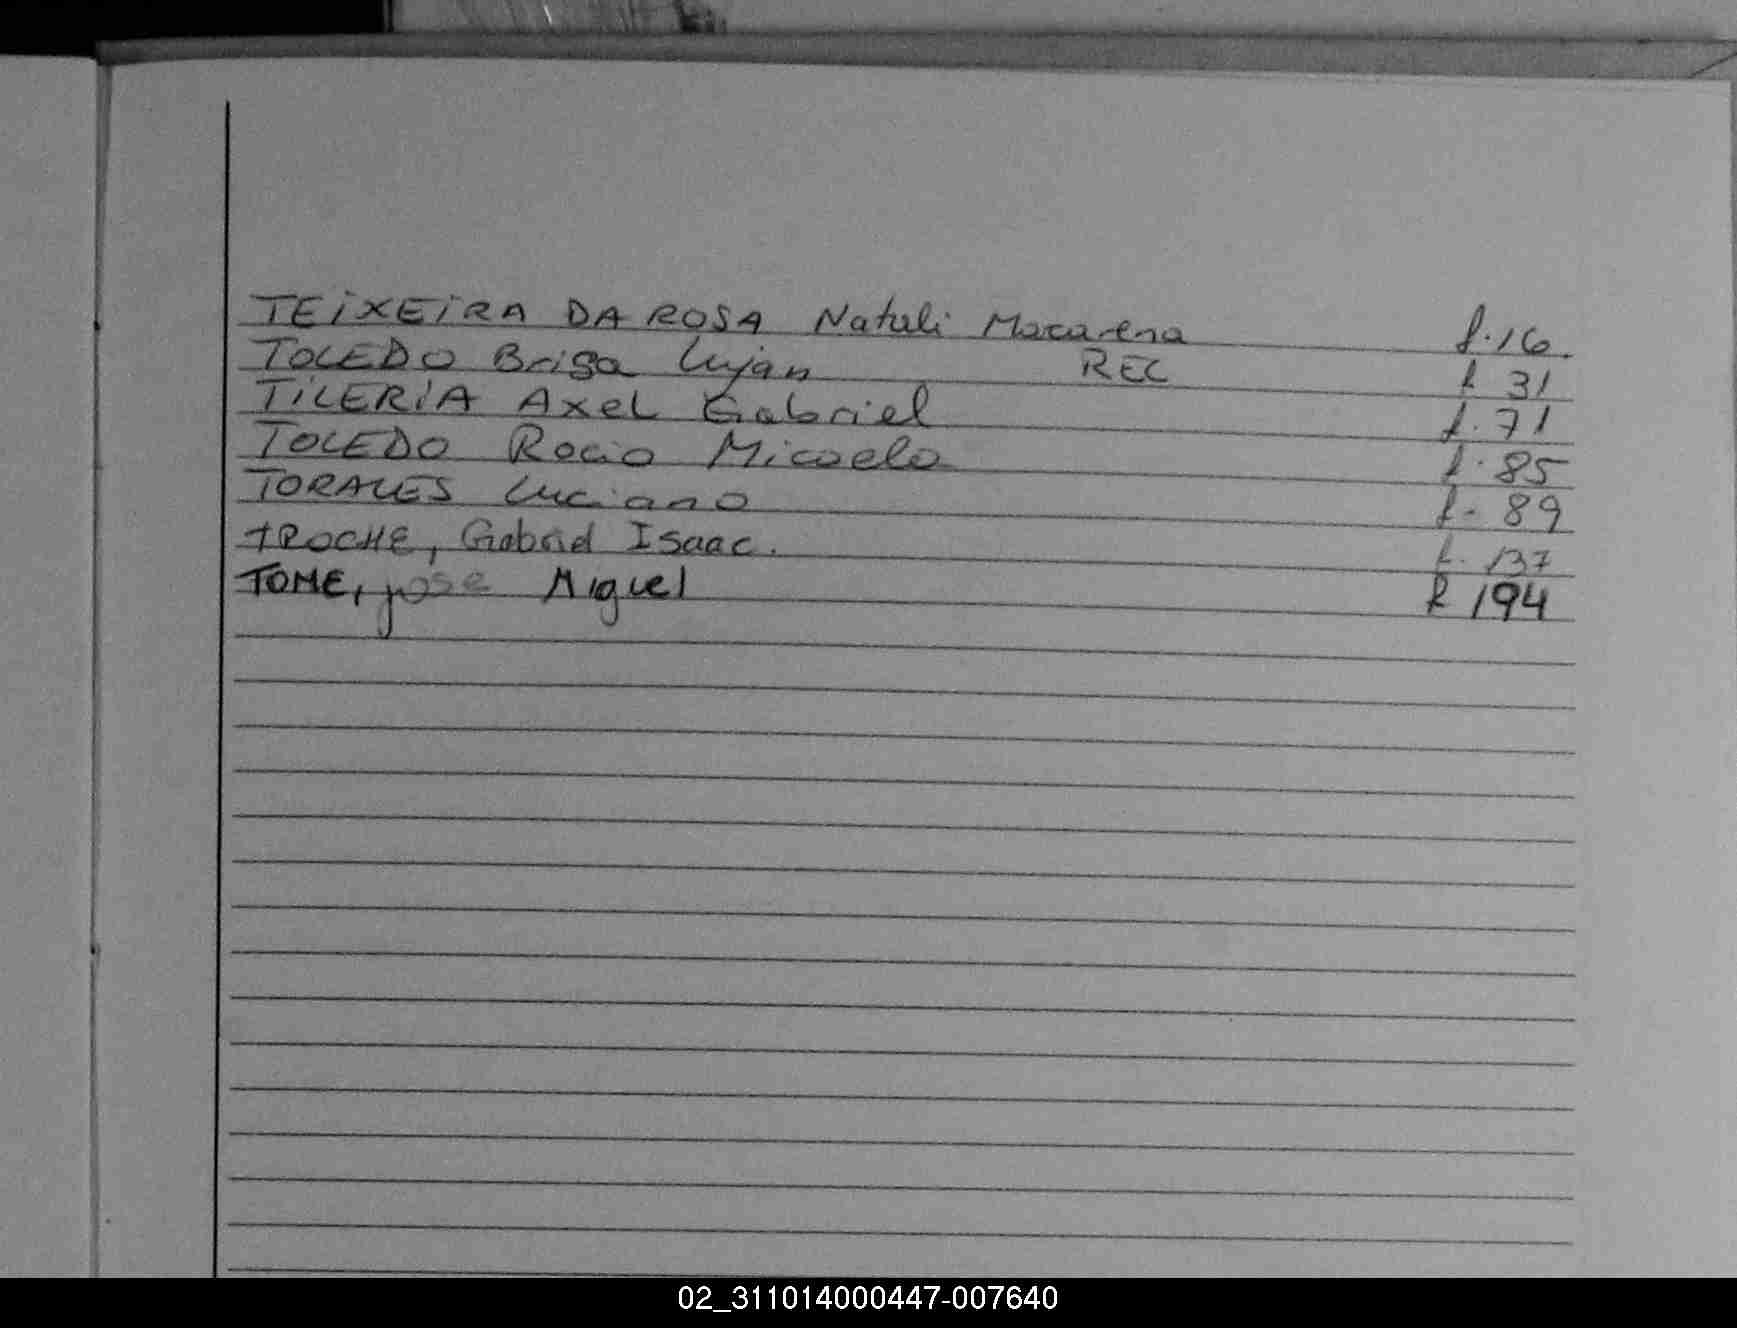 TEiXEiRA DA ROSA Natali Macarena f. 16.
TOLEDO Brisa Lujan REC f 31
TiLERiA Axel Gabriel f. 71
TOLEDO Rocio Micaela f. 85
TORALES Luciano f. 89
TROCHE, Gabriel Isaac. f. 137
TOME, jose Miguel f 194
02_311014000447-007640